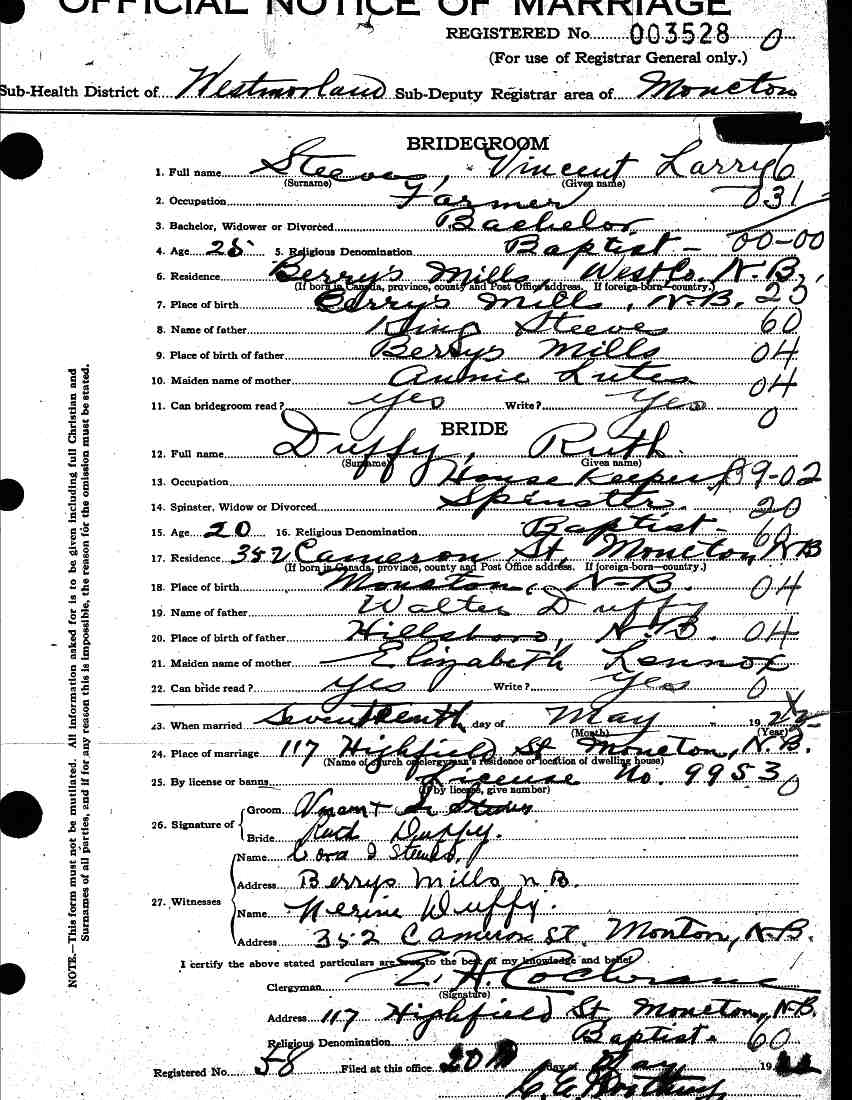 OFFICIAL NOTICE OF MARRIAGE
REGISTERED No. 003528 0
(For use of Registrar General only.)
Sub-Health District of Westmorland Sub-Deputy Registrar area of Moncton
BRIDEGROOM
1. Full name Steeves, Vincent Larry 6
(Surname) (Given name)
2. Occupation Farmer 031
3. Bachelor, Widower or Divorced Bachelor
4. Age 25 5. Religious Denomination Baptist - 00-00
6. Residence Berrys Mills, West Co. N.B.,
(If born in Canada, province, county and Post Office address. If foreign-born—country.)
7. Place of birth Berrys Mills, N.B. 25
8. Name of father King Steeves 60
9. Place of birth of father Berrys Mills 04
10. Maiden name of mother Annie Lutes 04
11. Can bridegroom read? yes Write? yes
0
BRIDE
12. Full name Duffy, Ruth
(Surname) Given name)
13. Occupation House Keeper 89-02
14. Spinster, Widow or Divorced Spinster. 20
15. Age 20 16. Religious Denomination Baptist - 60
17. Residence 352 Cameron St, Moncton, N B
(If born in Canada, province, county and Post Office address. If foreign-born—country.)
18. Place of birth Moncton, N-B. 04
19. Name of father Walter Duffy
20. Place of birth of father Hillsboro, N.B. 04
21. Maiden name of mother Elizabeth Lennox
22. Can bride read? yes Write? yes 0
23. When married Seventeenth day of May 19
(Month) (Year)
24. Place of marriage 117 Highfield St Moncton, N.B.
(Name of church or clergyman's residence or location of dwelling house)
25. By license or banns License No. 9953 0
(If by license, give number)
26. Signature of Groom Vincent L Steeves
Bride Ruth Duffy.
27. Witnesses Name Cora I Steeves
Address Berrys Mills N B.
Name Nerine Duffy.
Address 352 Cameron St. Monton, N.B.
I certify the above stated particulars are true to the best of my knowledge and belief
Clergyman E. H. Cochrane
(Signature)
Address 117 Highfield St Moncton, N.B.
Religious Denomination Baptist. 60
Registered No. 58 Filed at this office 20 day of May 19
NOTE.—This form must not be mutilated. All information asked for is to be given including full Christian and
Surnames of all parties, and if for any reason this is impossible, the reason for the omission must be stated.